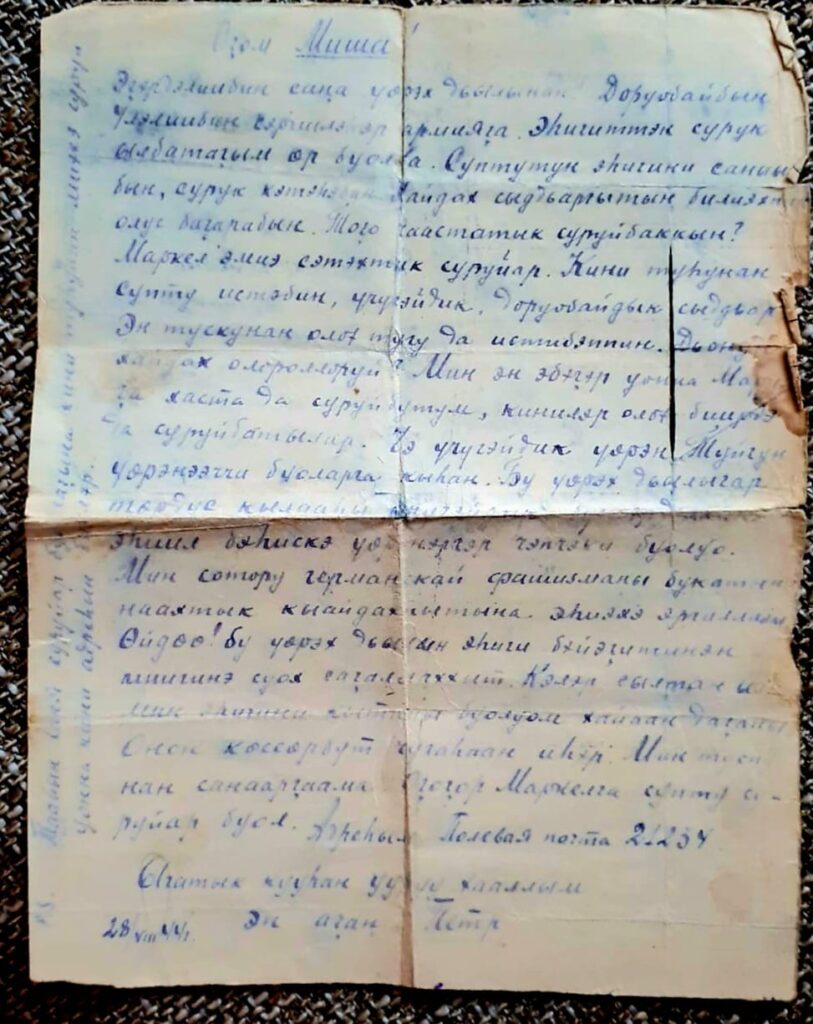 Оҕом Миша!
Эҕэрдэлиибин саҥа үөрэх дьылынан! Доруобайбын
Үлэлиибин сэриилэһэр армияҕа. Эһигиттэн сурук
ылбатаҕым өр буолла. Суптутун эһигини саныы
бын, сурук кэтэһэбин Хайдах сыдьаргытын билиэхпин
олус баҕарабын. Тоҕо чаастатык суруйбаккын?
Маркел эмиэ сэтэхтик суруйар. Кини туһунан
супту истэбин, үчүгэйдик, доруобайдык сыддьар
Эн тускунан олох тугу да истибэппин. Дьонуҥ
хайдах олороллоруй? Мин эн эбэҕэр уонна
хаста да суруйбутум, кинилэр олох биирдэ
да суруйбатылар. Чэ үчүгэйдик үөрэн Туйгун
үөрэнээччи буоларга кыһан. Бу үөрэх дьылыгар
төрдүс кылааһы
эһиил бэһискэ үөрэнэргэр чэпчэки буолуо.
Мин сотору германскай фашизмы букатын
наахтык кыайдахпытына эһиэхэ эргиллиэм
Өйдөө! бу үөрэх дьылын эһиги бэйэгитинэн
миигинэ суох саҕаллаххыт. Кэлэр сылтан ыла
мин эһигини кытта буолуом хайаан даҕаны
Онон көссөрбүт чугаһаан иһэр. Мин
нан санааргаама Оҕоҕор Маркелга супту су-
руйар буол. Аҕреһым Полевая почта 21234
Ыгатык кууһан ууруу хааллым
28/VIII 44 г. Эн аҕаҥ Петр
P.S. суруйар кини туһунан миэхэ суруй
уонна кини адреһин биллэр.